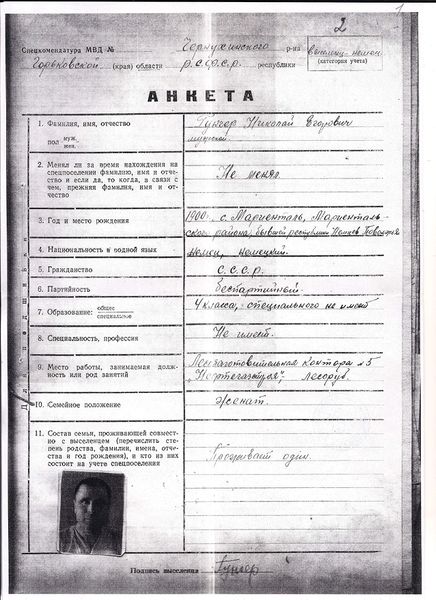 1
2
Спецкомендатура МВД № Чернухинского р-на
Горьковской (края) области р.с.ф.с.р. республики
выселенец-немец
(категория учета)
АНКЕТА
1. Фамилия, имя, отчество
пол муж. жен.
Гунгер Николай Егорович
мужской
2. Менял ли за время нахождения на
спецпоселении фамилию, имя и отче-
ство и если да, то когда, в связи с
чем, прежняя фамилия, имя и от-
чество
Не менял
3. Год и место рождения
1900. с. Мариенталь, Мариенталь-
ского района, бывшей республики Немцев Поволжья
4. Национальность и родной язык
Немец, немецкий.
5. Гражданство
С.С.С.р.
6. Партийность
беспартийный
7. Образование: общее специальное
4 класса, специального не имеет
8. Специальность, профессия
Не имеет.
9. Место работы, занимаемая долж-
ность или род занятий
Лесозаготовительная контора №5
"Нефтегазстроя", лесоруб.
10. Семейное положение
Женат.
11. Состав семьи, проживающей совмест-
но с выселенцем (перечислить сте-
пень родства, фамилии, имена, отче-
ства и год рождения), и кто из них
состоит на учете спецпоселения
Проживает один.
Подпись выселенца Гунгер